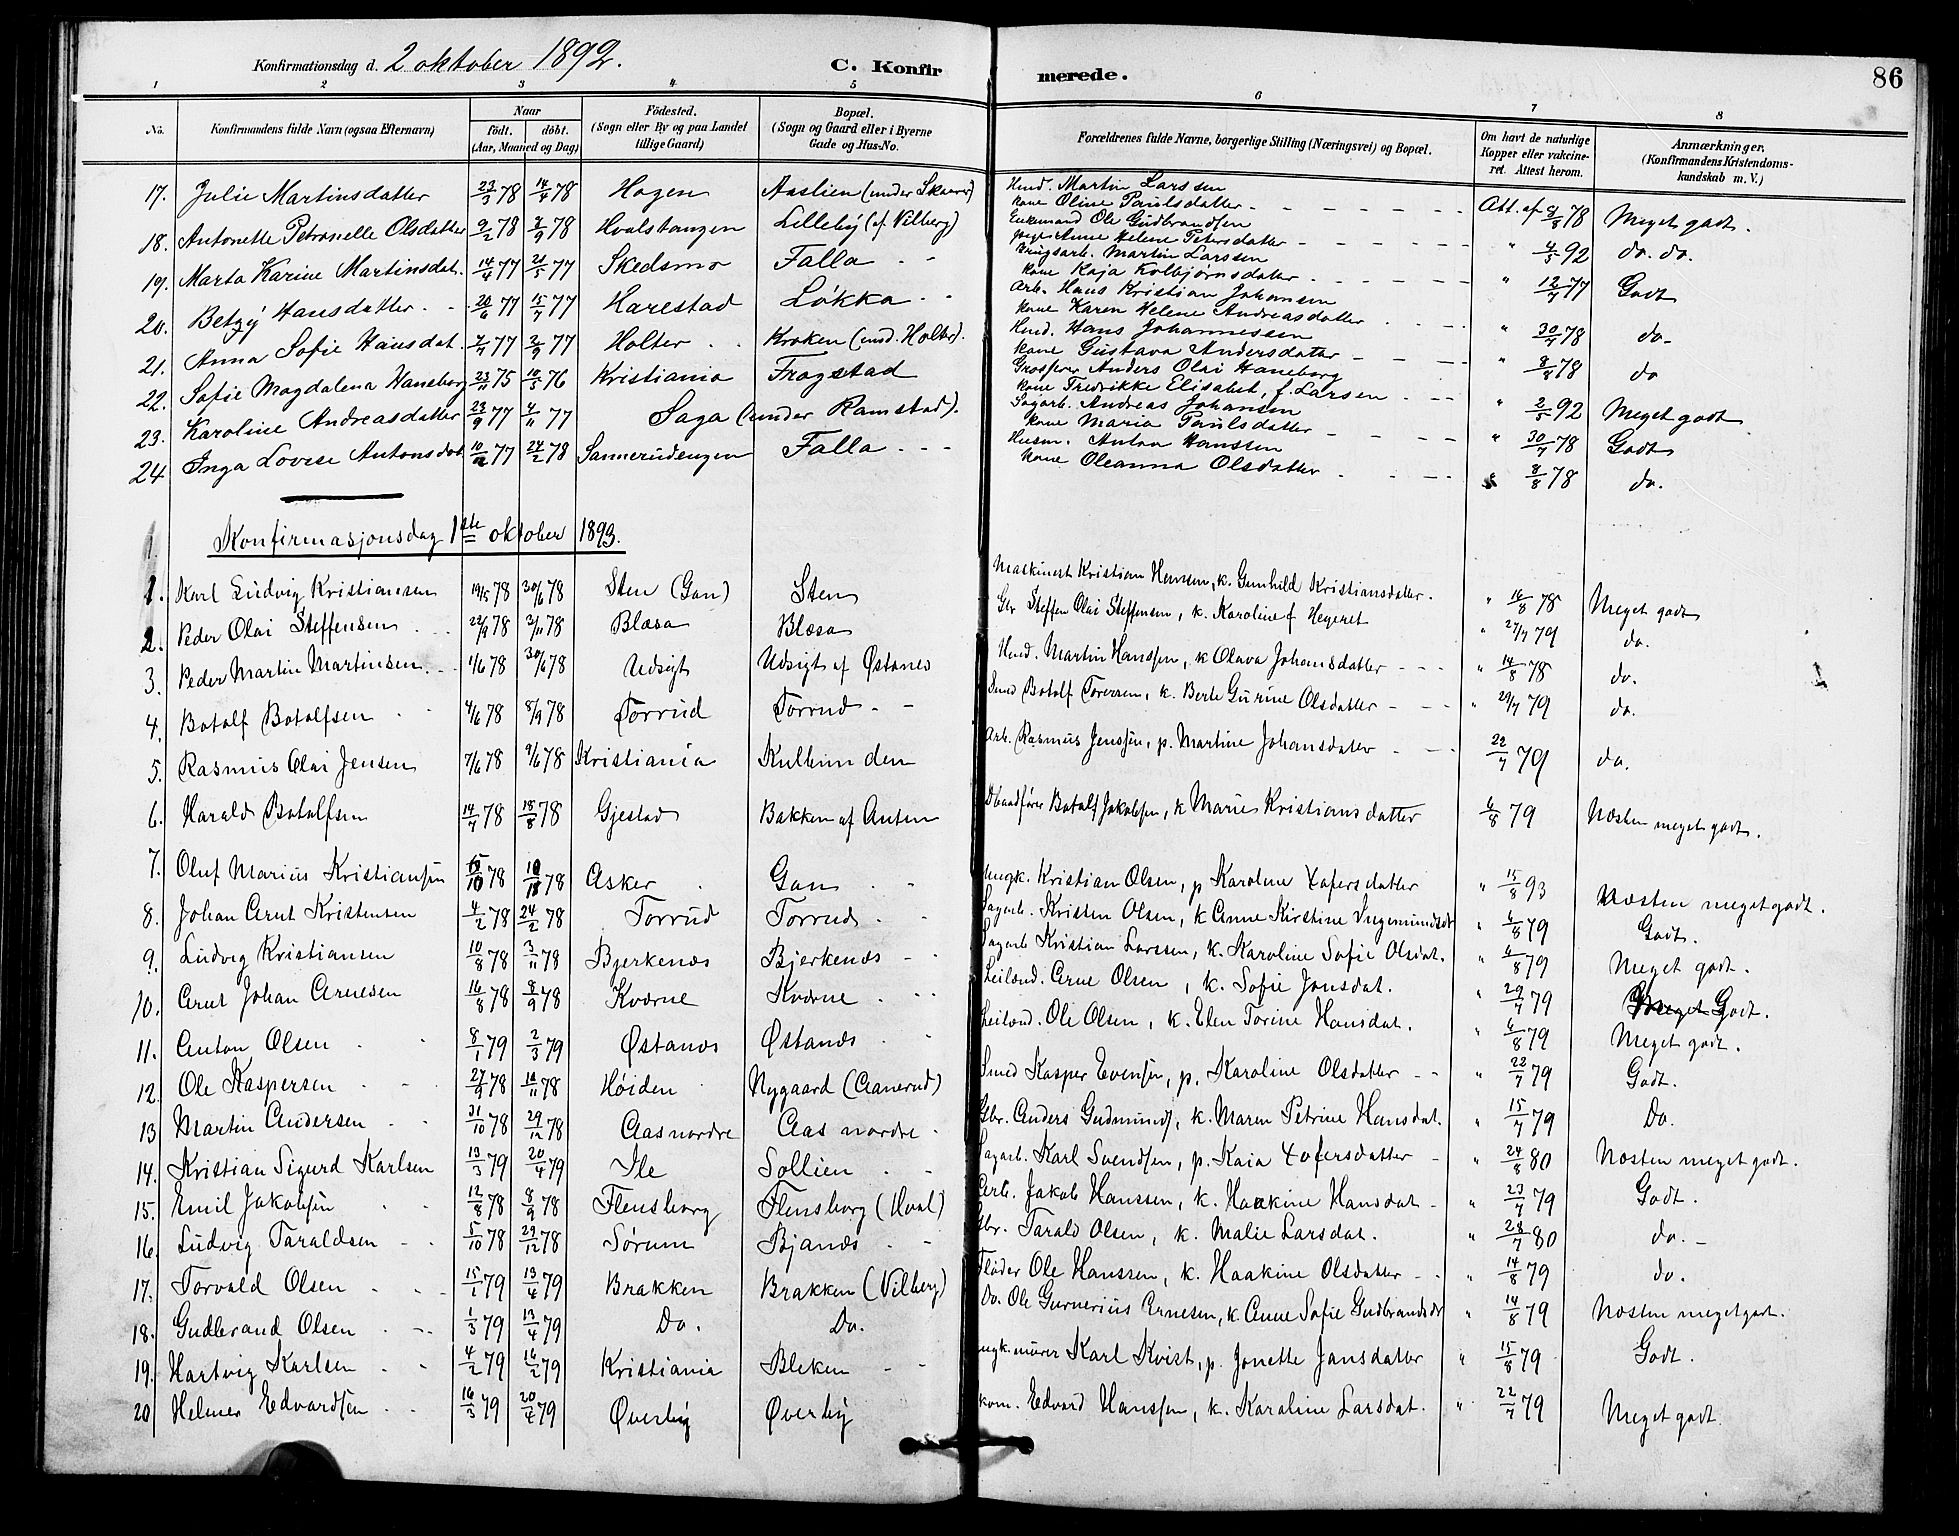 Konfirmationsdag d. 2 oktober 1892. C. Konfirmerede. 86
1 2 3 4 5 6 7 8
No. Konfirmandens fulde Navn (ogsaa Efternavn) Naar født. døbt. (Aar, Maaned og Dag) Fødested. (Sogn eller By og paa Landet tillige Gaard) Bopæl. (Sogn og Gaard eller i Byerne Gade og Hus-No. Forældrenes fulde Navne, borgerlige Stilling (Næringsvei) og Bopæl. Om havt de naturlige Kopper eller vakcineret. Attest herom. Anmærkninger. (Konfirmandens Kristendomskundskab m. V.)
17. Julie Martinsdatter 23/3 78 14/4 78 Hagen Aaslien (under Skaarer) Hmd. Martin Larssen kone Oline Paulsdatter Att. af 8/8 78 Meget godt.
18. Antonette Petronelle Olsdatter 9/2 78 Hvalstangen Lilleby (af Vilberg) Enkemand Ole Gudbrandsen pige Anne Helene Petersdatter " 4/5 92 do. do.
19. Marta Karine Martinsdat. 14/4 77 21/5 77 Skedsmo Falla Brugsarb. Martin Larssen kone Kaja Kolbjørnsdatter " 12/7 77 Godt
20. Betzy Hansdatter 20/6 77 15/7 77 Harestad Løkka Arb. Hans Kristian Johansen kone Karen Helene Andreasdatter " 30/7 78 do
21. Anna Sofie Hansdat. 77 2/9 77 Holter Kroken (und. Holter). Hmd. Hans Johannessen kone Gustava Andersdatter " 78 do
22. Sofie Magdalena Haneborg 23/11 75 10/5 76 Kristiania Frogstad Grosserer Anders Olai Haneborg kone Fredrikke Elisabet, f. Larsen " 2/5 92 Meget godt
23. Karoline Andreasdatter 23/9 77 4/11 77 Saga (under Ramstad). Sagarb. Andreas Johansen kone Maria Paulsdatter " 30/7 78 Godt
24 Inga Lovise Antonsdat 10/12 77 24/2 78 Sannerudengen Falla Husm. Anton Hanssen kone Oleanna Olsdatter " 8/8 78 do.
Konfirmasjonsdag 1ste oktober 1893.
1. Karl Ludvig Kristiansen 19/5 78 30/6 78 Sten (Gan) Sten Maskinest Kristian Hansen, k. Gunhild Kristiansdatter. " 16/8 78 Meget godt
2. Peder Olai Steffensen 22/9 78 3/11 78 Blæsa Blæsa Gbr Steffen Olai Steffensen, k. Karoline f Hegeret " 27/7 79 do.
3. Peder Martin Martinsen 1/6 78 30/6 78 Udsigt Udsigt af Østanes Hmd. Martin Hanssen, k Olava Johansdatter " 14/8 78 do.
4. Botolf Botolfsen 4/6 78 8/9 78 Torrud Torrud Smed Botolf Toressen, k. Berte Gurine Olsdatter " 29/7 79 do.
5. Rasmus Olai Jensen 7/6 78 9/6 78 Kristiania Kulbunden Arb. Rasmus Jenssen, p. Martine Johansdatter 22/7 79 do.
6. Harald Botolfsen 14/7 78 18/8 78 Gjestad Bakken af Anten Botolf Jakobsen, k Marie Kristiansdatter 6/8 79 Næsten meget godt.
7. Oluf Marius Kristiansen 15/10 78 78 Asker Gan ungk. Kristian Olsen, p Karoline Xofersdatter " 15/8 93 Næsten meget godt.
8. Johan Arnt Kristensen 4/2 78 24/2 78 Torrud Torrud Sagarb. Kristen Olsen, k Anne Kirstine Ingemundsdt " 6/8 79 Godt.
9. Ludvig Kristiansen 10/8 78 3/11 78 Bjerkenæs Bjerkenæs Sagarb Kristian Larssen, k. Karoline Sofie Olsdat. " 6/8 79 Meget godt.
10. Arnt Johan Arnesen 16/8 78 8/9 78 Kværne Kværne Leilænd. Arne Olsen, k. Sofie Jonsdat. " 29/7 79 Godt.
11. Anton Olsen 8/1 79 2/3 79 Østanæs Østanæs Leilænd. Ole Olsen, k. Elen Torine Hansdat. " 6/8 79 Meget godt.
12 Ole Kaspersen 27/9 78 10/11 78 Høiden Nygaard (Aanerud) Smed Kasper Evensen, p. Karoline Olsdatter " 22/7 79 Godt.
13 Martin Andersen 31/10 78 29/12 78 Aas nordre Aas nordre Gbr. Anders Gudmunds, k. Maren Petrine Hansdat. " 15/7 79 Do.
14. Kristian Sigurd Karlsen 13/3 79 20/4 79 Ile Sollien Sagarb. Karl Svendsen, p. Kaia Xofersdatter " 24/8 80 Næsten meget godt.
15. Emil Jakobsen 12/8 78 8/9 78 Flensborg Flensborg (Hval) Arb. Jakob Hanssen, k. Haakine Hansdat " 23/7 79 Godt.
16. Ludvig Taraldsen 5/10 78 29/12 78 Sørum Bjanæs Gbr. Tarald Olsen, k. Malie Larsdat. " 28/7 80 do.
17. Torvald Olsen 15/1 79 13/4 79 Brakken Brakken (Vilberg) Fløder Ole Hanssen, k. Haakine Olsdatter " 14/8 79 do.
18. Gudbrand Olsen 1/3 79 13/4 79 Do. Do. Do. Ole Gunerius Arnesen, k Anne Sofie Gudbrandsdt " 14/8 79 Næsten meget godt.
19. Hartvig Karlsen 4/2 79 16/2 79 Kristiania Bleken ungk. murer Karl Kvist, p. Jonette Jansdatter " 15/8 79 Godt.
20 Helmer Edvardsen 16/3 79 20/4 79 Øverby Øverby Edvard Hanssen, k. Karoline Larsdat. " 22/7 79 Meget godt.